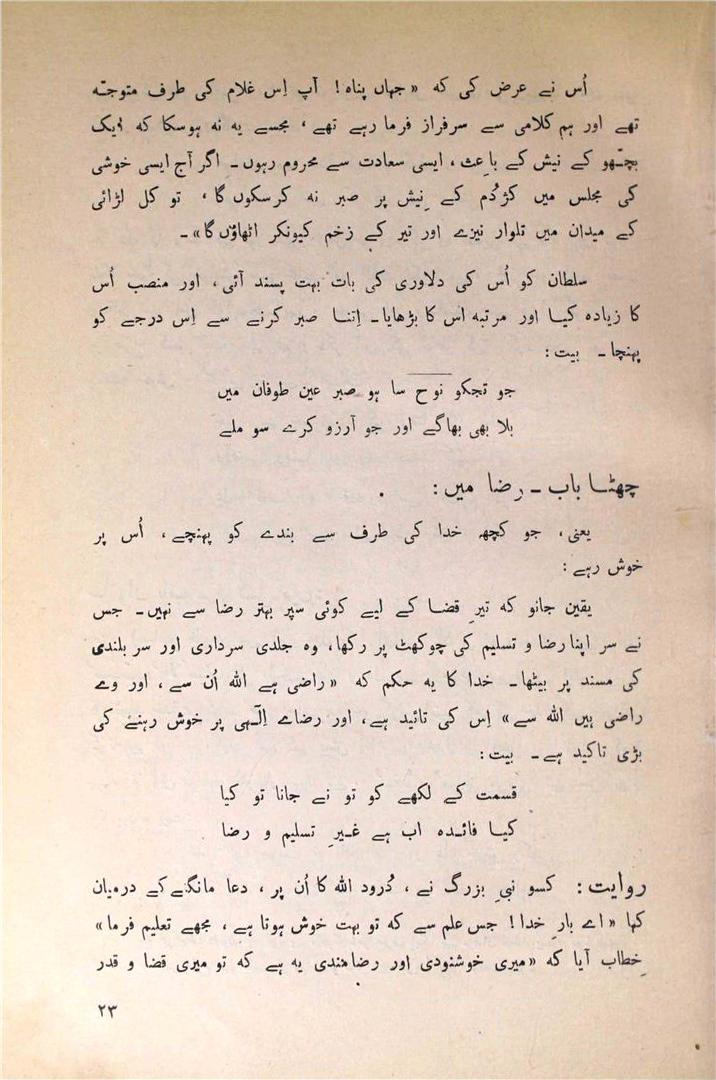 اُس نے عرض کی کہ «جہاں پناہ! آپ اِس غلام کی طرف متوجّہ
تھے اور ہم کلامی سے سرفراز فرما رہے تھے، مجسے یہ نہ ہوسکا کہ ایک
بچّھو کے نیش کے باعث، ایسی سعادت سے محروم رہوں۔ اگر آج ایسی خوشی
کی مجلس میں کژدُم کے نیش پر صبر نہ کرسکوں گا، تو کل لڑائی
کے میدان میں تلوار نیزے اور تیر کے زخم کیونکر اٹھاؤں گا»۔
سلطان کو اُس کی دلاوری کی بات بہت پسند آئی، اور منصب اُس
کا زیادہ کیا اور مرتبہ اس کا بڑھایا۔ اِتنا صبر کرنے سے اِس درجے کو
پہنچا۔ بیت:
جو تجکو نوح سا ہو صبر عین طوفان میں
بلا بھی بھاگے اور جو آرزو کرے سو ملے
چھٹا باب۔ رضا میں:
یعنی، جو کچھ خدا کی طرف سے بندے کو پہنچے، اُس پر
خوش رہے:
یقین جانو کہ تیرِ قضا کے لیے کوئی سپر بہتر رضا سے نہیں۔ جس
نے سر اپنا رضا و تسلیم کی چوکھٹ پر رکھا، وہ جلدی سرداری اور سربلندی
کی مسند پر بیٹھا۔ خدا کا یہ حکم کہ «راضی ہے اللہ اُن سے، اور وے
راضی ہیں اللہ سے» اِس کی تائید ہے، اور رضاے اِلٰہی پر خوش رہنے کی
بڑی تاکید ہے۔ بیت:
قسمت کے لکھے کو تو نے جانا تو کیا
کیا فائدہ اب ہے غیرِ تسلیم و رضا
روایت: کسو نبیِ بزرگ نے، دُرود اللہ کا اُن پر، دعا مانگنے کے درمیان
کہا «اے بارِ خدا! جس علم سے کہ تو بہت خوش ہوتا ہے، مجھے تعلیم فرما»
خِطاب آیا کہ «میری خوشنودی اور رضامندی یہ ہے کہ تو میری قضا و قدر
۲۳